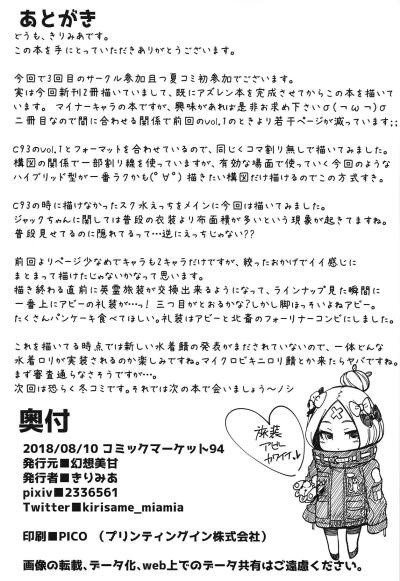 あとがき
どうも、きりみあです。
この本を手にとっていただきありがとうございます。
今回で3回目のサークル参加且つ夏コミ初参加でございます。
実は今回新刊2冊描いていまして、既にアズレン本を完成させてからこの本を描いて
います。 マイナーキャラの本ですが、興味があれば是非お求め下さいσ(っωっ)σ
二冊目なので間に合わせる関係で前回のvol.1のときより若干ページが減っています;;
C93のvol.1とフォーマットを合わせているので、同じくコマ割り無しで描いてみました。
構図の関係で一部割り線を使っていますが、有効な場面で使っていく今回のような
ハイブリッド型が一番ラクかも(°∀°) 描きたい構図だけ描けるのでこの方式すき。
C93の時に描けなかったスク水えっちをメインに今回は描いてみました。
ジャックちゃんに関しては普段の衣装より布面積が多いという現象が起きてますね。
普段見せてるのに隠れてるって…逆にえっちじゃない??
前回よりページ少なめでキャラも2キャラだけですが、絞ったおかげでイイ感じに
まとまって描けたじゃないかなって思います。
描き終わる直前に英霊旅装が交換出来るようになって、ラインナップ見た瞬間に
一番上にアビーの礼装が…っ! 三つ目がとおるかな?しかし脚ほっそいよねアビー。
たくさんパンケーキ食べてほしい。礼装はアビーと北斎のフォーリナーコンビにしました。
これを描いてる時点では新しい水着鯖の発表がまだされていないので、一体どんな
水着ロリが実装されるのか楽しみですね。マイクロビキニロリ鯖とか来たらヤバですね。
まず審査通らなさそうですが…。
次回は恐らく冬コミです。それでは次の本で会いましょう～ノシ
奥付
2018/08/10 コミックマーケット94
発行元■幻想美甘
発行者■きりみあ
pixiv■2336561
Twitter■kirisame_miamia
印刷■PICO (プリンティングイン株式会社)
画像の転載、データ化、web上でのデータ共有はご遠慮ください。
旅装
アビー
カワイイ